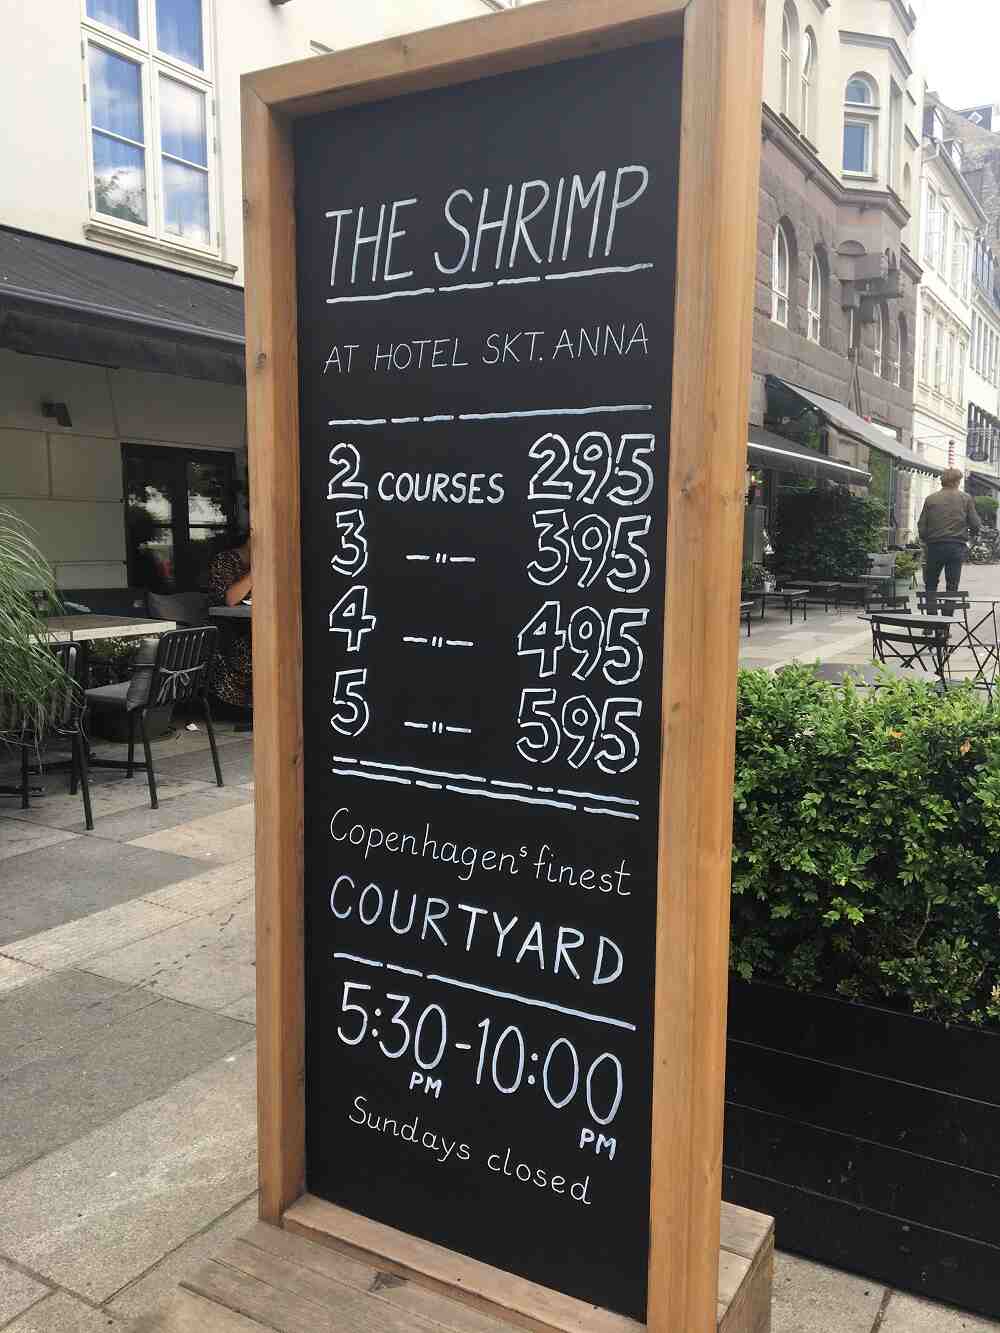 THE SHRIMP
AT HOTEL SKT. ANNA
2 COURSES 295
3 —"— 395
4 —"— 495
5 —"— 595
Copenhagens finest
COURTYARD
5:30-10:00
PM PM
Sundays closed